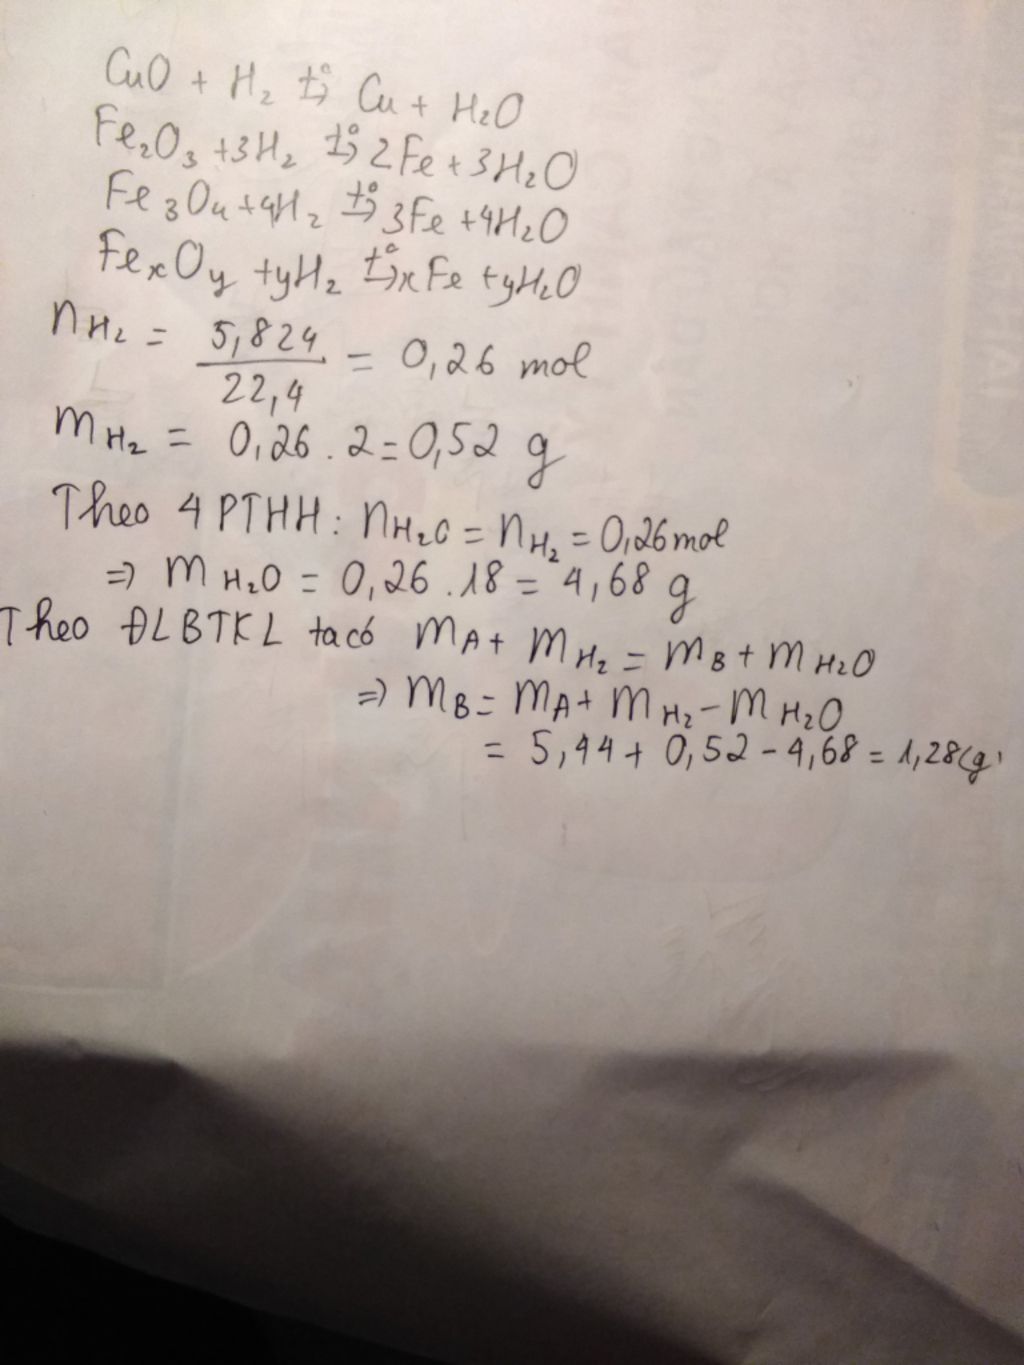 CuO + H₂ t°→ Cu + H₂O
Fe₂O₃ + 3H₂ t°→ 2Fe + 3H₂O
Fe₃O₄ + 4H₂ t°→ 3Fe + 4H₂O
FeₓOy + yH₂ t°→ xFe + yH₂O
nH₂ = 5,824/22,4 = 0,26 mol
mH₂ = 0,26 . 2 = 0,52 g
Theo 4 PTHH: nH₂O = nH₂ = 0,26 mol
⇒ mH₂O = 0,26 . 18 = 4,68 g
Theo ĐLBTKL ta có mA + mH₂ = mB + mH₂O
⇒ mB = mA + mH₂ - mH₂O
= 5,44 + 0,52 - 4,68 = 1,28(g)